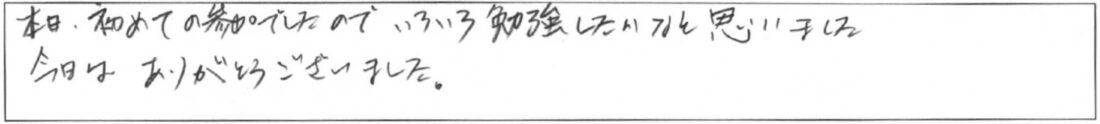 本日、初めての参加でしたので いろいろ勉強したいなと思いました
今日は ありがとうございました。